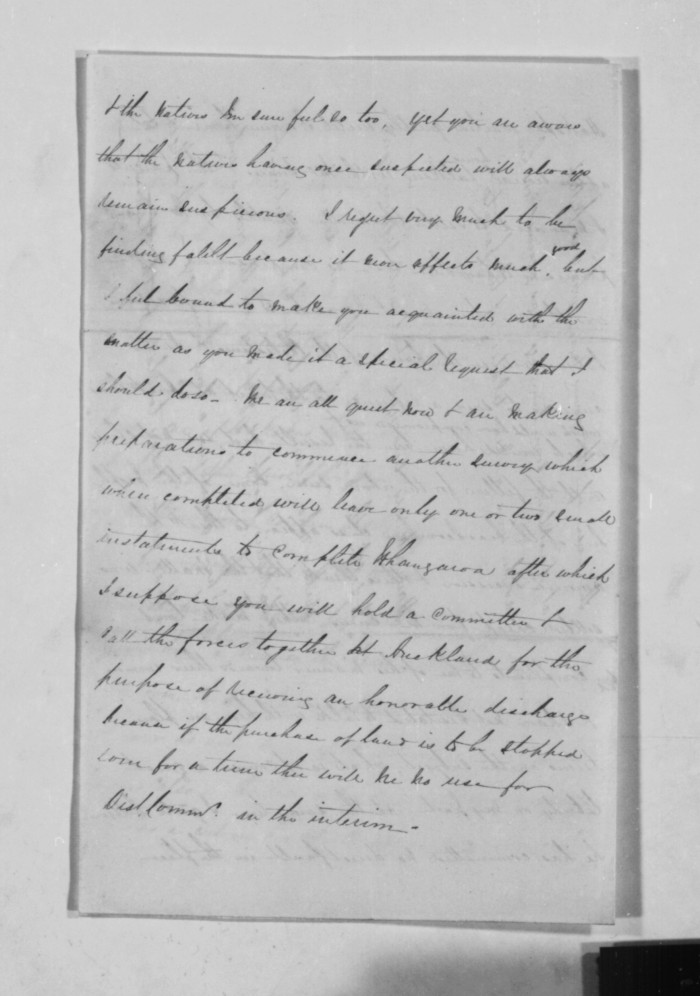 & the Natives Im sure feel so too, yet you are aware
that the natives having once suspected will always
remain suspicious. I regret very much to be
finding falilt because it never effects much good, but
I feel bound to make you acquainted with the
matter as you made it a special request that I
should do so – We are all quiet now & are making
preparations to commence another survey which
when completed will leave only one or two small
instalments to complete Whangaroa after which
I suppose you will hold a committee &
call the forces together at Auckland for the
purpose of receiving an honorable discharge
because if the purchase of land is to be stopped
even for a time ther will be no use for
Dist Commr. in the interim –